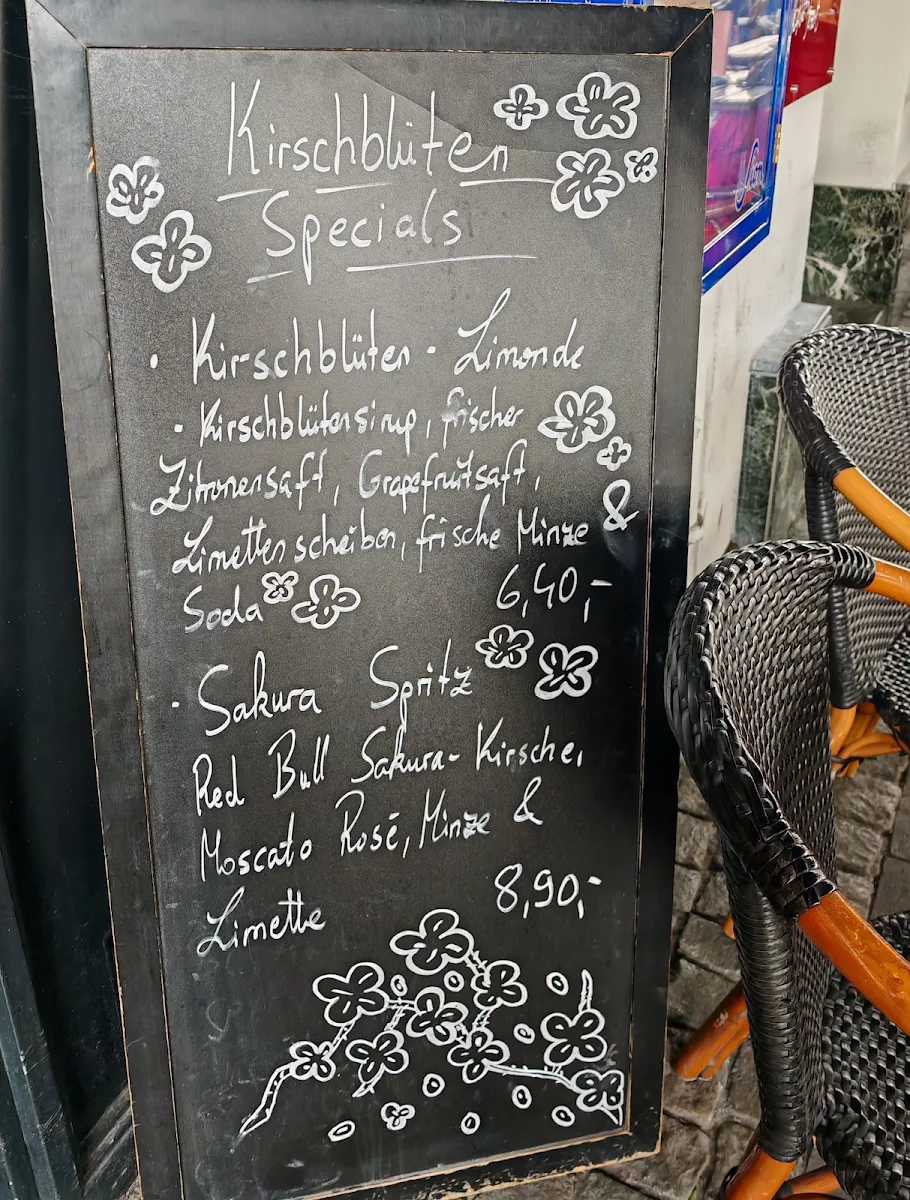 Kirschblüten
Specials
· Kirschblüten - Limonde
- Kirschblütensirup, frischer
Zitronensaft, Grapefruitsaft,
Limettenscheiben, frische Minze &
Soda 6,40,-
· Sakura Spritz
Red Bull Sakura-Kirsche,
Moscato Rosé, Minze &
Limette 8,90,-